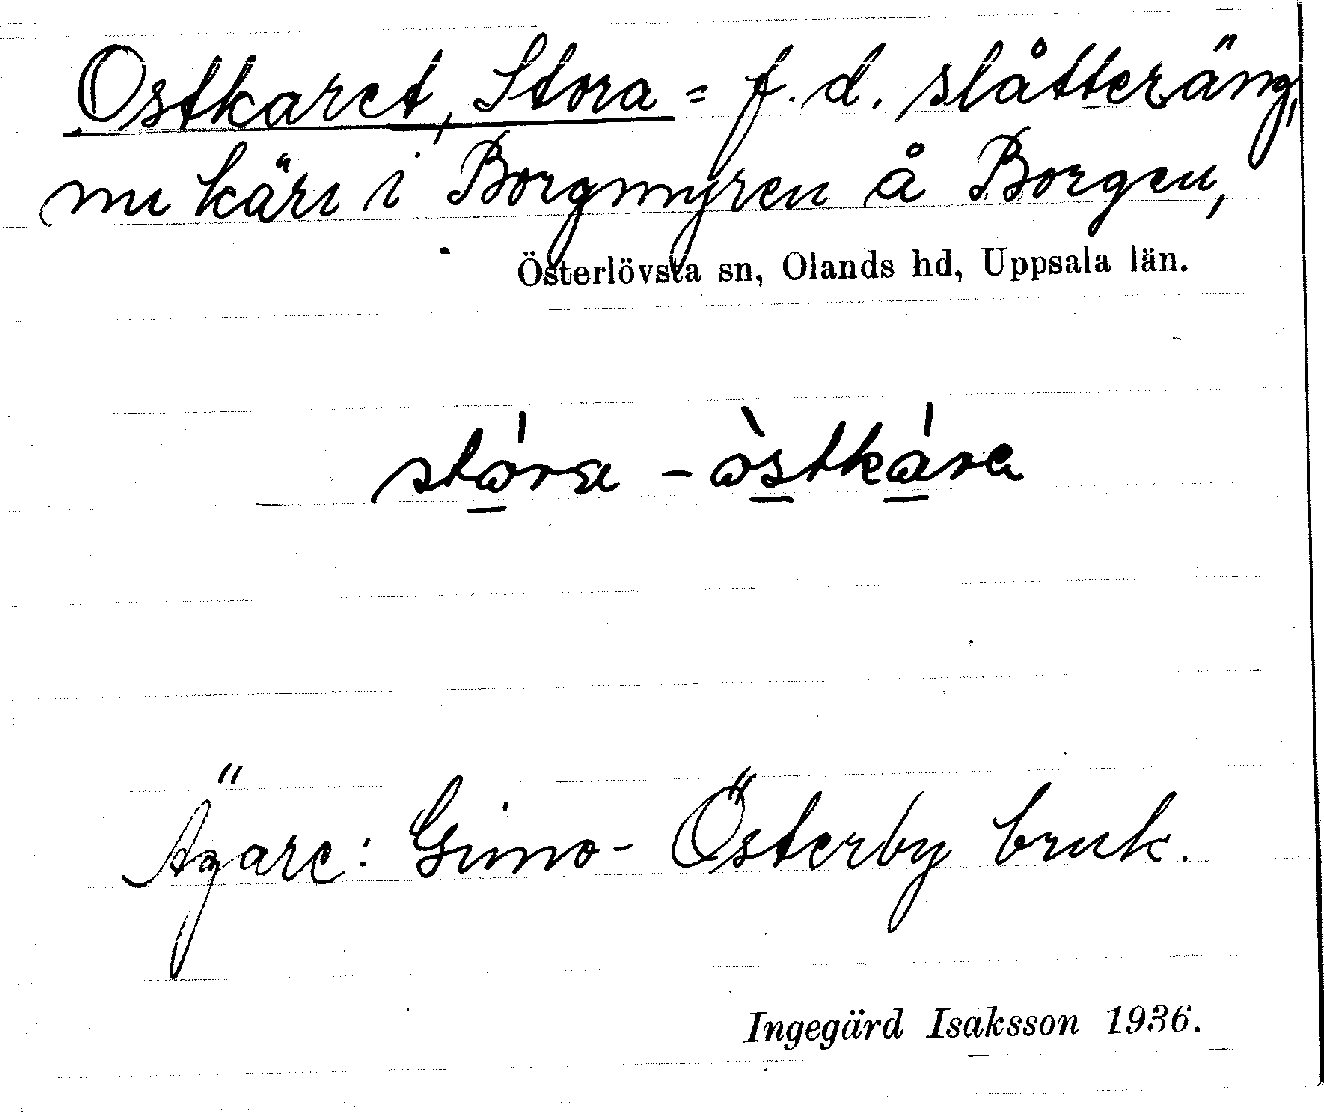 Ostkaret, Stora = f.d. slåtteräng,
nu kärr i Borgmyren å Borgen,
Österlövsta sn, Olands hd, Uppsala län.
stó̱ra - ò̱s̱tká̱ra
Ägare: Gimo-Österby bruk.
Ingegärd Isaksson 1936.